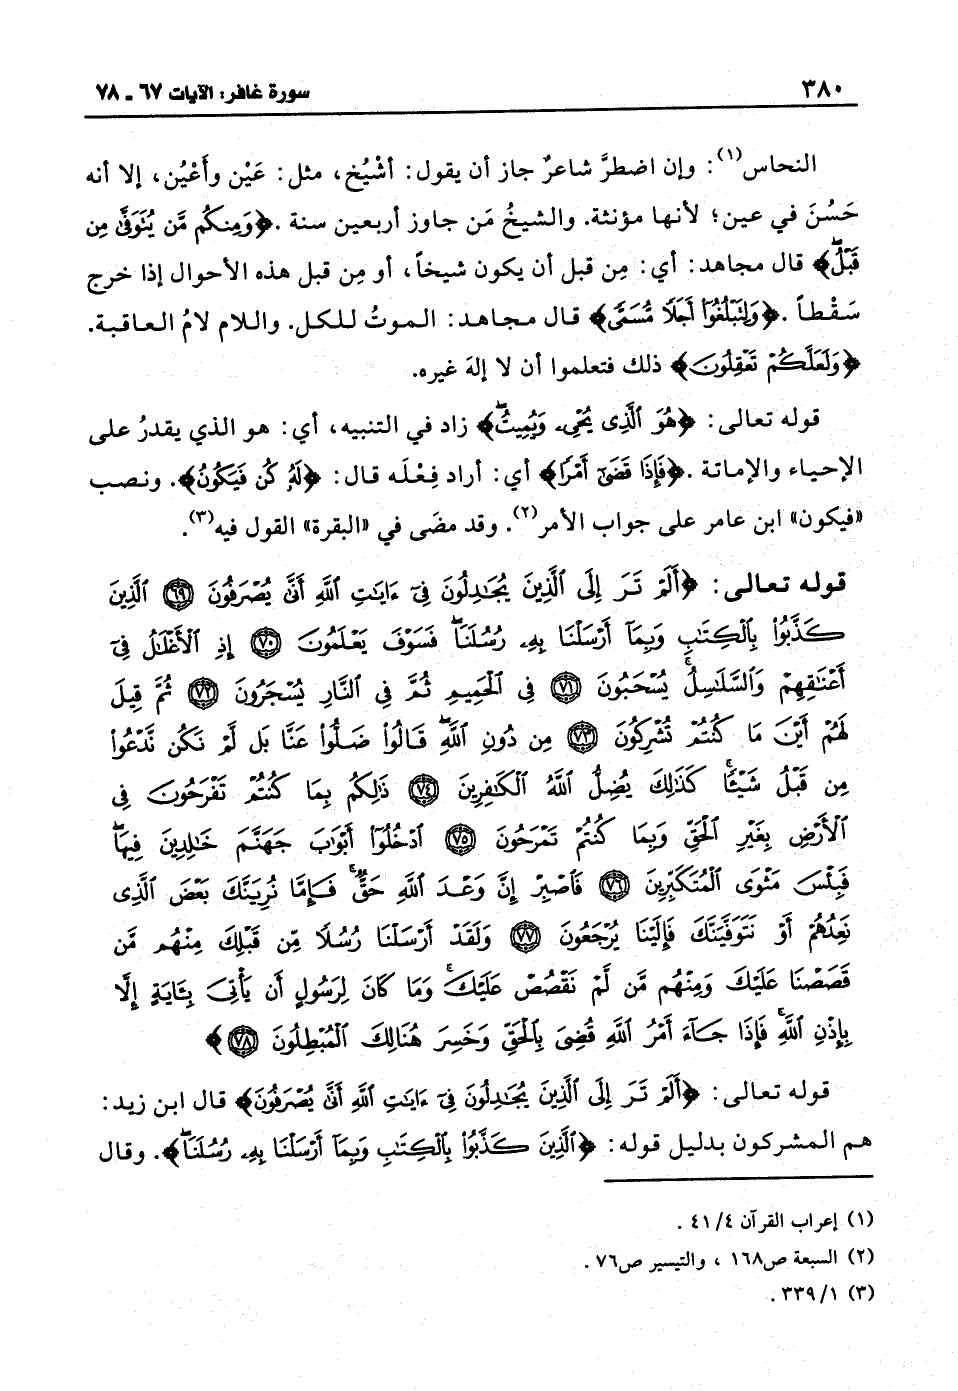 ٣٨٠ سورة غافر: الآيات ٦٧ ـ ٧٨
النحاس(١): وإن اضطرَّ شاعرٌ جاز أن يقول: أشْيُخ، مثل: عَيْن وأَعْيُن، إلا أنه
حَسُنَ في عين؛ لأنها مؤنثة. والشيخُ مَن جاوز أربعين سنة. ﴿وَمِنكُم مَّن يُتَوَفَّىٰ مِن
قَبْلُۖ﴾ قال مجاهد: أي: مِن قبل أن يكون شيخاً، أو مِن قبل هذه الأحوال إذا خرج
سَقْطاً. ﴿وَلِتَبْلُغُوٓاْ أَجَلًا مُّسَمًّى﴾ قال مجاهد: الموتُ للكل. واللام لامُ العاقبة.
﴿وَلَعَلَّكُمْ تَعْقِلُونَ﴾ ذلك فتعلموا أن لا إلهَ غيره.
قوله تعالى: ﴿هُوَ ٱلَّذِى يُحْىِۦ وَيُمِيتُۖ﴾ زاد في التنبيه، أي: هو الذي يقدرُ على
الإحياء والإماتة. ﴿فَإِذَا قَضَىٰٓ أَمْرًا﴾ أي: أراد فِعْلَه قال: ﴿لَهُۥ كُن فَيَكُونُ﴾. ونصب
«فيكون» ابن عامر على جواب الأمر(٢). وقد مضَى في «البقرة» القول فيه(٣).
قوله تعالى: ﴿أَلَمْ تَرَ إِلَى ٱلَّذِينَ يُجَٰدِلُونَ فِىٓ ءَايَٰتِ ٱللَّهِ أَنَّىٰ يُصْرَفُونَ ٦٩ ٱلَّذِينَ
كَذَّبُواْ بِٱلْكِتَٰبِ وَبِمَآ أَرْسَلْنَا بِهِۦ رُسُلَنَاۖ فَسَوْفَ يَعْلَمُونَ ٧٠ إِذِ ٱلْأَغْلَٰلُ فِىٓ
أَعْنَٰقِهِمْ وَٱلسَّلَٰسِلُ يُسْحَبُونَ ٧١ فِى ٱلْحَمِيمِ ثُمَّ فِى ٱلنَّارِ يُسْجَرُونَ ٧٢ ثُمَّ قِيلَ
لَهُمْ أَيْنَ مَا كُنتُمْ تُشْرِكُونَ ٧٣ مِن دُونِ ٱللَّهِۖ قَالُواْ ضَلُّواْ عَنَّا بَل لَّمْ نَكُن نَّدْعُواْ
مِن قَبْلُ شَيْـًٔاۚ كَذَٰلِكَ يُضِلُّ ٱللَّهُ ٱلْكَٰفِرِينَ ٧٤ ذَٰلِكُم بِمَا كُنتُمْ تَفْرَحُونَ فِى
ٱلْأَرْضِ بِغَيْرِ ٱلْحَقِّ وَبِمَا كُنتُمْ تَمْرَحُونَ ٧٥ ٱدْخُلُوٓاْ أَبْوَٰبَ جَهَنَّمَ خَٰلِدِينَ فِيهَاۖ
فَبِئْسَ مَثْوَى ٱلْمُتَكَبِّرِينَ ٧٦ فَٱصْبِرْ إِنَّ وَعْدَ ٱللَّهِ حَقٌّۚ فَإِمَّا نُرِيَنَّكَ بَعْضَ ٱلَّذِى
نَعِدُهُمْ أَوْ نَتَوَفَّيَنَّكَ فَإِلَيْنَا يُرْجَعُونَ ٧٧ وَلَقَدْ أَرْسَلْنَا رُسُلًا مِّن قَبْلِكَ مِنْهُم مَّن
قَصَصْنَا عَلَيْكَ وَمِنْهُم مَّن لَّمْ نَقْصُصْ عَلَيْكَۗ وَمَا كَانَ لِرَسُولٍ أَن يَأْتِىَ بِـَٔايَةٍ إِلَّا
بِإِذْنِ ٱللَّهِۚ فَإِذَا جَآءَ أَمْرُ ٱللَّهِ قُضِىَ بِٱلْحَقِّ وَخَسِرَ هُنَالِكَ ٱلْمُبْطِلُونَ ٧٨﴾
قوله تعالى: ﴿أَلَمْ تَرَ إِلَى ٱلَّذِينَ يُجَٰدِلُونَ فِىٓ ءَايَٰتِ ٱللَّهِ أَنَّىٰ يُصْرَفُونَ﴾ قال ابن زيد:
هم المشركون بدليل قوله: ﴿ٱلَّذِينَ كَذَّبُواْ بِٱلْكِتَٰبِ وَبِمَآ أَرْسَلْنَا بِهِۦ رُسُلَنَاۖ﴾. وقال
(١) إعراب القرآن ٤/ ٤١.
(٢) السبعة ص١٦٨، والتيسير ص٧٦.
(٣) ١/ ٣٣٩.